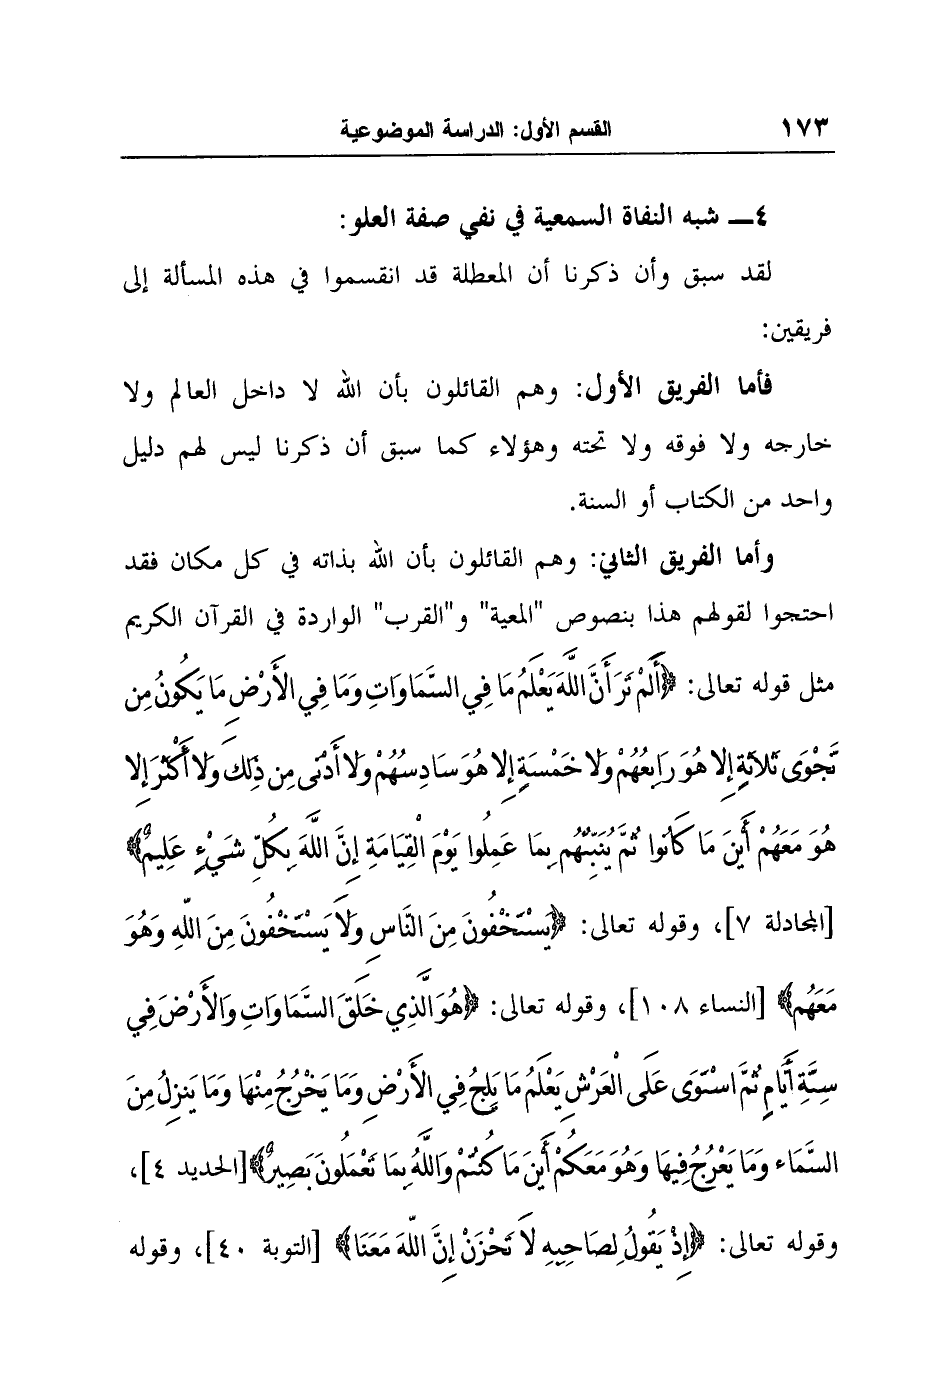 ١٧٣ القسم الأول: الدراسة الموضوعية
٤ــ شبه النفاة السمعية في نفي صفة العلو:
لقد سبق وأن ذكرنا أن المعطلة قد انقسموا في هذه المسألة إلى
فريقين:
فأما الفريق الأول: وهم القائلون بأن الله لا داخل العالم ولا
خارجه ولا فوقه ولا تحته وهؤلاء كما سبق أن ذكرنا ليس لهم دليل
واحد من الكتاب أو السنة.
وأما الفريق الثاني: وهم القائلون بأن الله بذاته في كل مكان فقد
احتجوا لقولهم هذا بنصوص "المعية" و"القرب" الواردة في القرآن الكريم
مثل قوله تعالى: ﴿أَلَمْ تَرَ أَنَّ اللَّهَ يَعْلَمُ مَا فِي السَّمَاوَاتِ وَمَا فِي الأَرْضِ مَا يَكُونُ مِن
نَّجْوَى ثَلاثَةٍ إِلا هُوَ رَابِعُهُمْ وَلا خَمْسَةٍ إِلا هُوَ سَادِسُهُمْ وَلا أَدْنَى مِن ذَلِكَ وَلا أَكْثَرَ إِلا
هُوَ مَعَهُمْ أَيْنَ مَا كَانُوا ثُمَّ يُنَبِّئُهُم بِمَا عَمِلُوا يَوْمَ الْقِيَامَةِ إِنَّ اللَّهَ بِكُلِّ شَيْءٍ عَلِيمٌ﴾
[المجادلة ٧]، وقوله تعالى: ﴿يَسْتَخْفُونَ مِنَ النَّاسِ وَلَا يَسْتَخْفُونَ مِنَ اللّهِ وَهُوَ
مَعَهُم﴾ [النساء ١٠٨]، وقوله تعالى: ﴿هُوَ الَّذِي خَلَقَ السَّمَاوَاتِ وَالأَرْضَ فِي
سِتَّةِ أَيَّامٍ ثُمَّ اسْتَوَى عَلَى الْعَرْشِ يَعْلَمُ مَا يَلِجُ فِي الأَرْضِ وَمَا يَخْرُجُ مِنْهَا وَمَا يَنزِلُ مِنَ
السَّمَاء وَمَا يَعْرُجُ فِيهَا وَهُوَ مَعَكُمْ أَيْنَ مَا كُنتُمْ وَاللَّهُ بِمَا تَعْمَلُونَ بَصِيرٌ﴾[الحديد ٤]،
وقوله تعالى: ﴿إِذْ يَقُولُ لِصَاحِبِهِ لَا تَحْزَنْ إِنَّ اللّهَ مَعَنَا﴾ [التوبة ٤٠]، وقوله